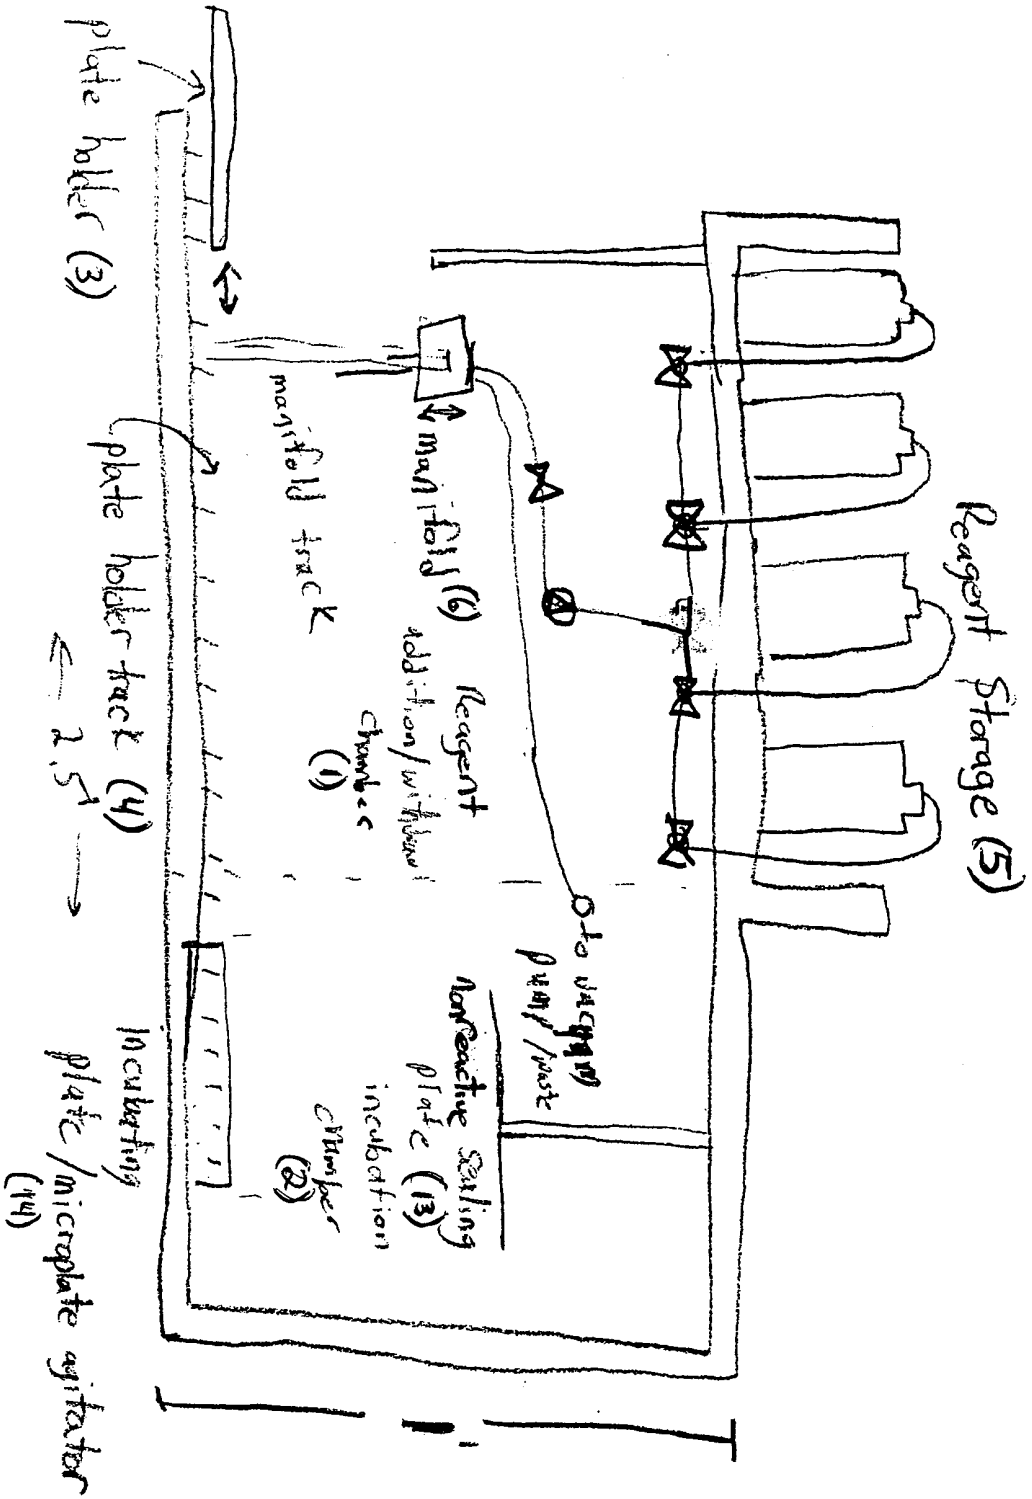 Reagent Storage (5)
to vacuum
pump/waste
Manifold (6)
manifold track
Reagent
addition/withdrawl
chamber
(1)
Nonreactive Sealing
plate (13)
incubation
chamber
(2)
plate holder (3)
plate holder track (4)
← 2.5' →
Incubating
plate/microplate agitator
(14)
1'